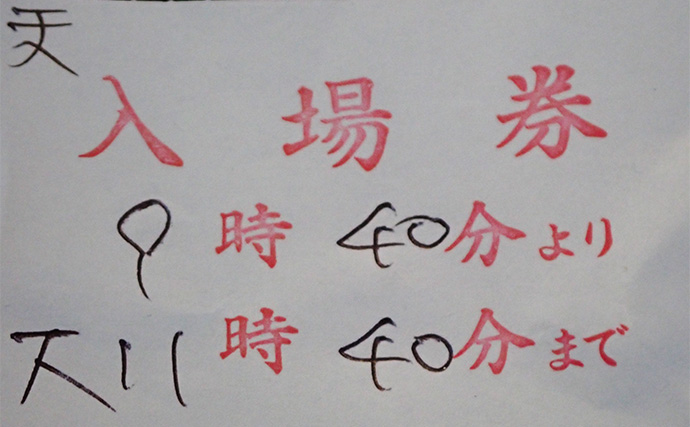 天
入場券
9時40分より
11時40分まで